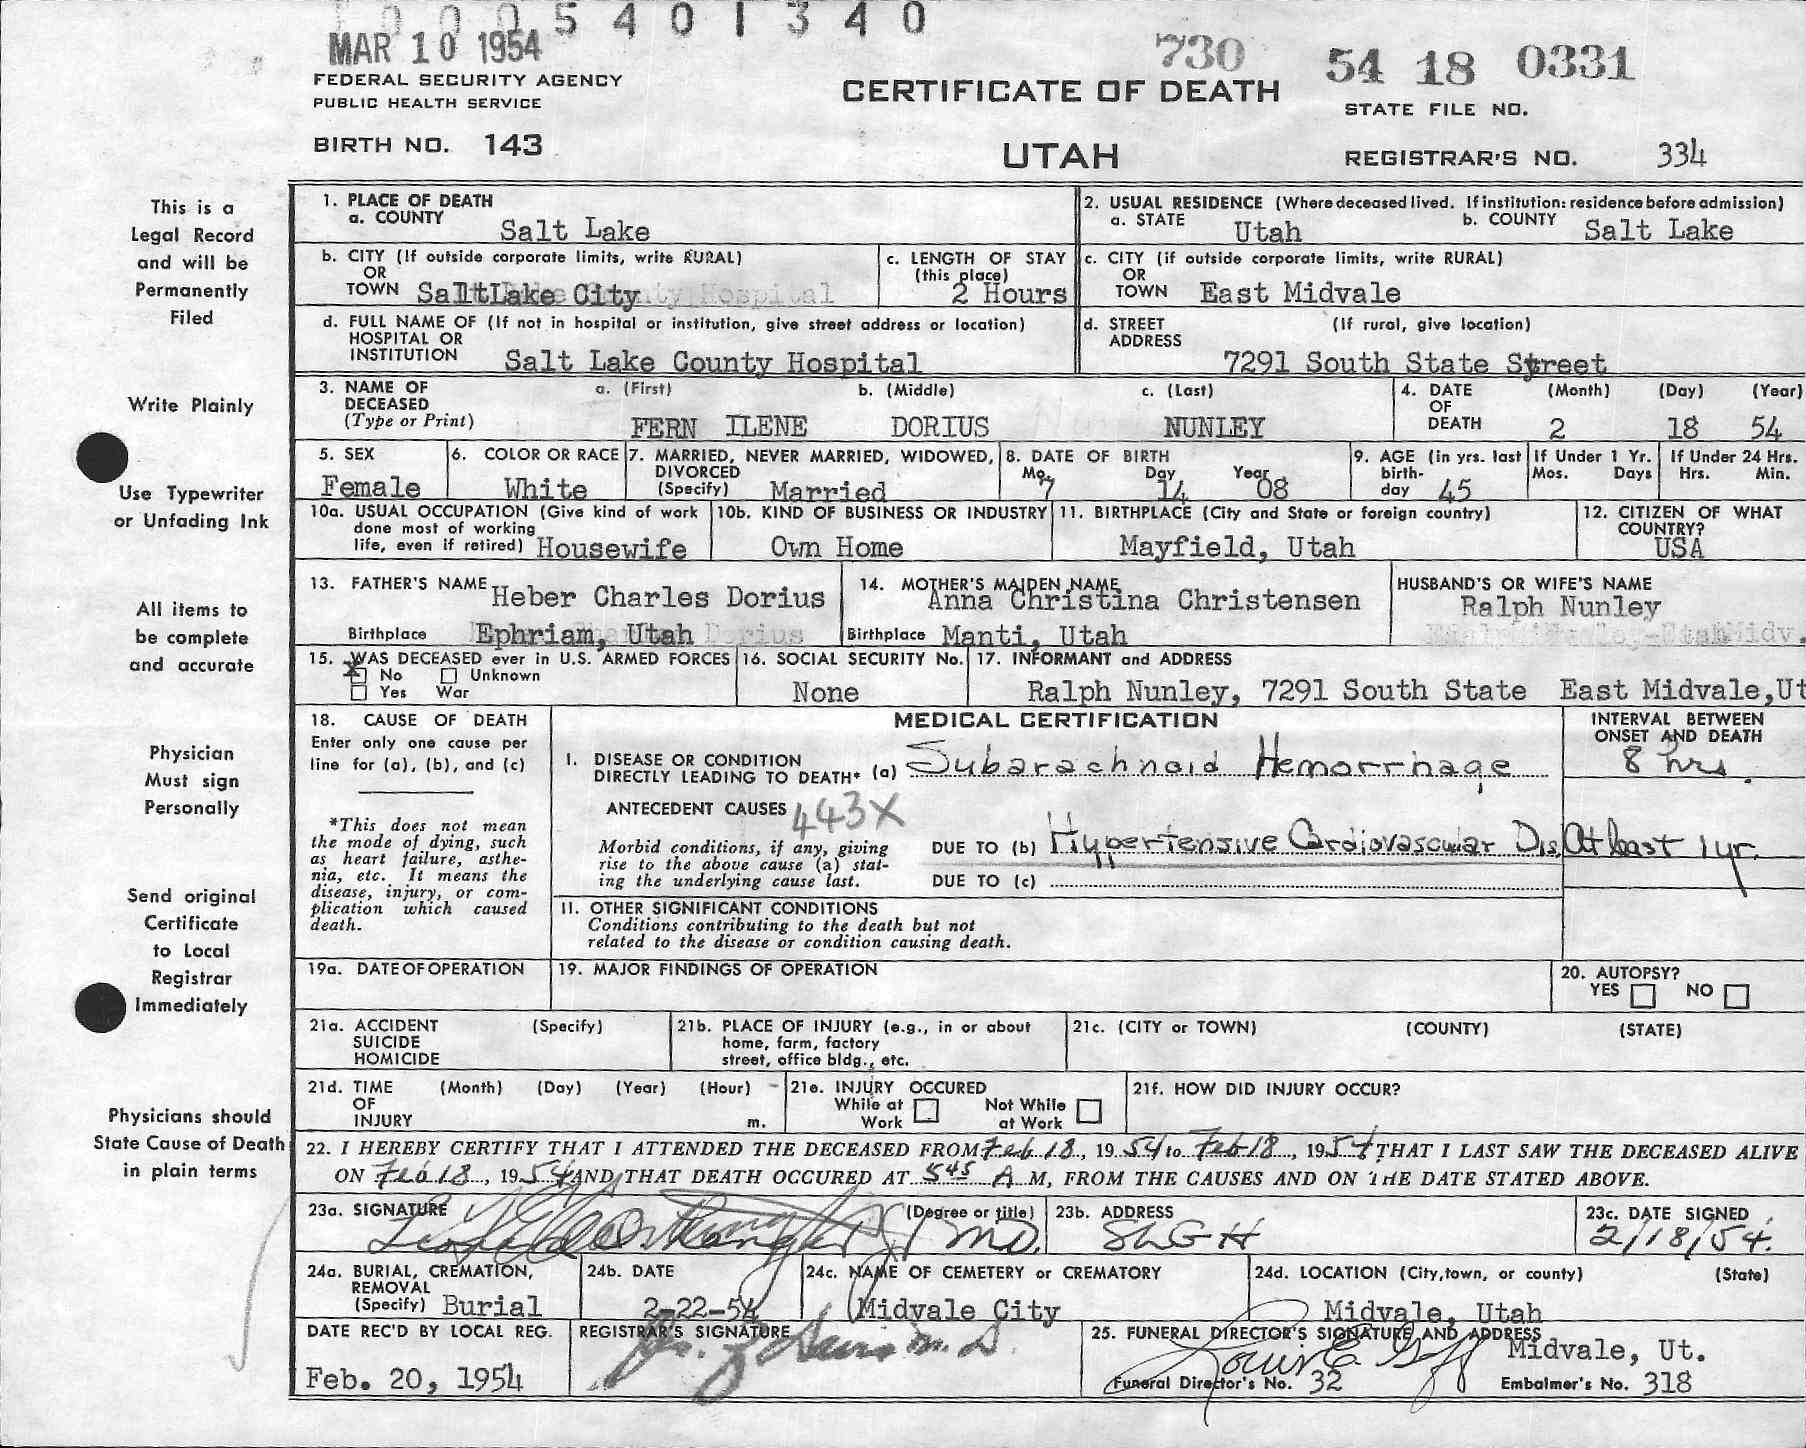 1 0 0 0 5 4 0 1 3 4 0
MAR 10 1954
730
54 18 0331
FEDERAL SECURITY AGENCY
PUBLIC HEALTH SERVICE
CERTIFICATE OF DEATH
STATE FILE NO.
BIRTH NO. 143
UTAH
REGISTRAR'S NO. 334
This is a
Legal Record
and will be
Permanently
Filed
Write Plainly
Use Typewriter
or Unfading Ink
All items to
be complete
and accurate
Physician
Must sign
Personally
Send original
Certificate
to Local
Registrar
Immediately
Physicians should
State Cause of Death
in plain terms
1. PLACE OF DEATH
a. COUNTY Salt Lake
2. USUAL RESIDENCE (Where deceased lived. If institution: residence before admission)
a. STATE Utah b. COUNTY Salt Lake
b. CITY (If outside corporate limits, write RURAL)
OR
TOWN SaltLake City
c. LENGTH OF STAY
(this place)
2 Hours
c. CITY (if outside corporate limits, write RURAL)
OR
TOWN East Midvale
d. FULL NAME OF (If not in hospital or institution, give street address or location)
HOSPITAL OR
INSTITUTION Salt Lake County Hospital
d. STREET (If rural, give location)
ADDRESS
7291 South State Street
3. NAME OF
DECEASED
(Type or Print)
a. (First) b. (Middle) c. (Last)
FERN ILENE DORIUS NUNLEY
4. DATE
OF
DEATH
(Month) (Day) (Year)
2 18 54
5. SEX
Female
6. COLOR OR RACE
White
7. MARRIED, NEVER MARRIED, WIDOWED,
DIVORCED
(Specify) Married
8. DATE OF BIRTH
Mo. Day Year
7 14 08
9. AGE (in yrs. last
birth-
day 45
If Under 1 Yr.
Mos. Days
If Under 24 Hrs.
Hrs. Min.
10a. USUAL OCCUPATION (Give kind of work
done most of working
life, even if retired) Housewife
10b. KIND OF BUSINESS OR INDUSTRY
Own Home
11. BIRTHPLACE (City and State or foreign country)
Mayfield, Utah
12. CITIZEN OF WHAT
COUNTRY?
USA
13. FATHER'S NAME Heber Charles Dorius
Birthplace Ephriam, Utah
14. MOTHER'S MAIDEN NAME
Anna Christina Christensen
Birthplace Manti, Utah
HUSBAND'S OR WIFE'S NAME
Ralph Nunley
15. WAS DECEASED ever in U.S. ARMED FORCES
x No Unknown
Yes War
16. SOCIAL SECURITY No.
None
17. INFORMANT and ADDRESS
Ralph Nunley, 7291 South State East Midvale,Ut
18. CAUSE OF DEATH
Enter only one cause per
line for (a), (b), and (c)
*This does not mean
the mode of dying, such
as heart failure, asthe-
nia, etc. It means the
disease, injury, or com-
plication which caused
death.
MEDICAL CERTIFICATION
INTERVAL BETWEEN
ONSET AND DEATH
I. DISEASE OR CONDITION
DIRECTLY LEADING TO DEATH* (a) Subarachnoid Hemorrhage 8 hrs.
ANTECEDENT CAUSES 443X
Morbid conditions, if any, giving
rise to the above cause (a) stat-
ing the underlying cause last.
DUE TO (b) Hypertensive Cardiovascular Dis. At least 1 yr.
DUE TO (c)
11. OTHER SIGNIFICANT CONDITIONS
Conditions contributing to the death but not
related to the disease or condition causing death.
19a. DATE OF OPERATION
19. MAJOR FINDINGS OF OPERATION
20. AUTOPSY?
YES NO
21a. ACCIDENT (Specify)
SUICIDE
HOMICIDE
21b. PLACE OF INJURY (e.g., in or about
home, farm, factory
street, office bldg., etc.
21c. (CITY or TOWN) (COUNTY) (STATE)
21d. TIME (Month) (Day) (Year) (Hour)
OF
INJURY m.
21e. INJURY OCCURED
While at Not While
Work at Work
21f. HOW DID INJURY OCCUR?
22. I HEREBY CERTIFY THAT I ATTENDED THE DECEASED FROM Feb 18, 1954 to Feb 18, 1954 THAT I LAST SAW THE DECEASED ALIVE
ON Feb 18, 1954 AND THAT DEATH OCCURED AT 5 45 A M, FROM THE CAUSES AND ON THE DATE STATED ABOVE.
23a. SIGNATURE (Degree or title)
MD.
23b. ADDRESS
SLGH
23c. DATE SIGNED
2/18/54.
24a. BURIAL, CREMATION,
REMOVAL
(Specify) Burial
24b. DATE
2-22-54
24c. NAME OF CEMETERY or CREMATORY
Midvale City
24d. LOCATION (City, town, or county) (State)
Midvale, Utah
DATE REC'D BY LOCAL REG.
Feb. 20, 1954
REGISTRAR'S SIGNATURE
M.D.
25. FUNERAL DIRECTOR'S SIGNATURE AND ADDRESS
Midvale, Ut.
Funeral Director's No. 32 Embalmer's No. 318